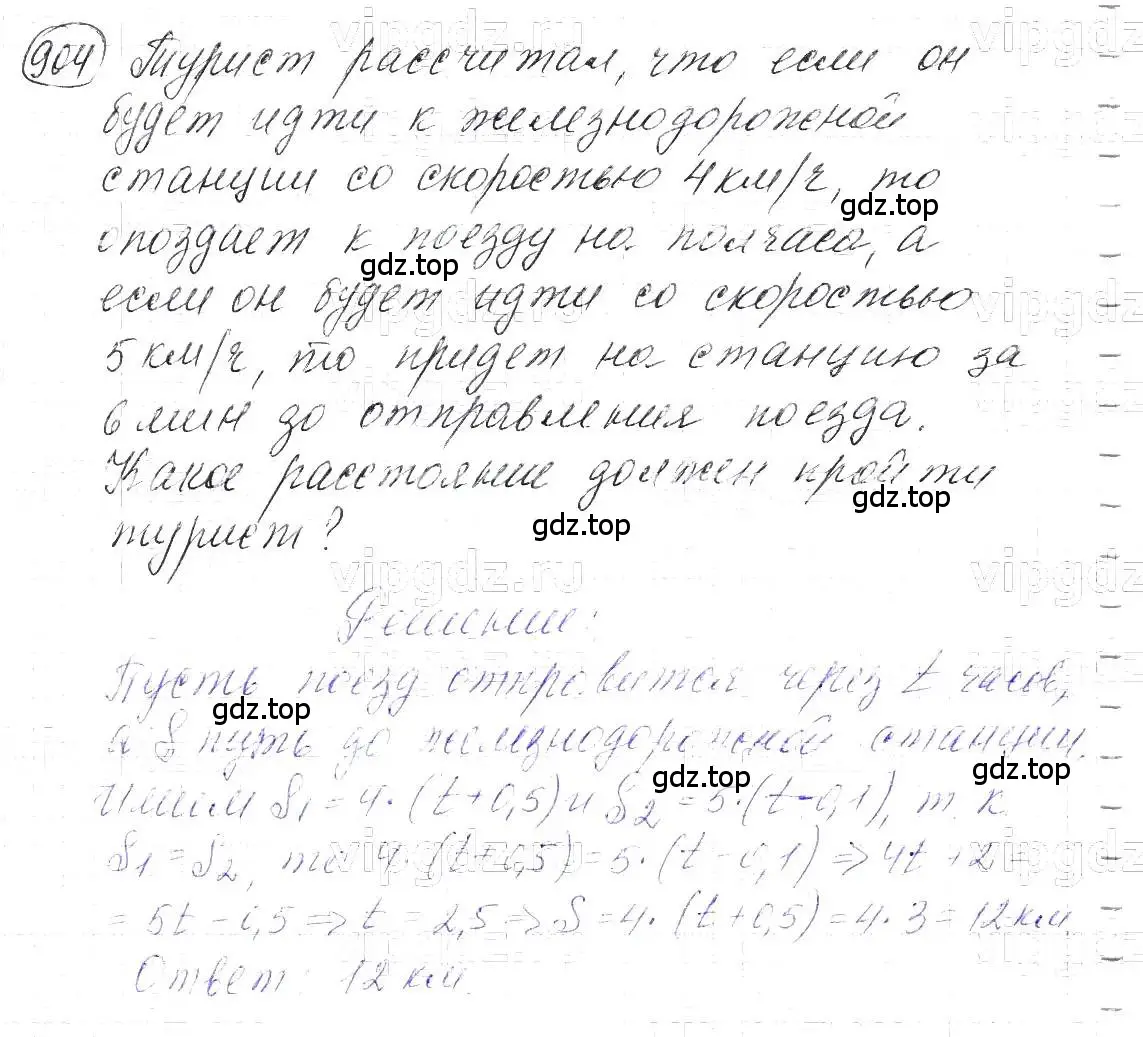 904 Турист рассчитал, что если он
будет идти к железнодорожной
станции со скоростью 4 км/ч, то
опоздает к поезду на полчаса, а
если он будет идти со скоростью
5 км/ч, то придет на станцию за
6 мин до отправления поезда.
Какое расстояние должен пройти
турист?
Решение:
Пусть поезд отправится через t часов,
а S путь до железнодорожной станции.
Имеем S1 = 4·(t+0,5) и S2 = 5·(t-0,1), т.к.
S1 = S2, то 4·(t+0,5) = 5·(t-0,1) ⇒ 4t+2 =
= 5t-0,5 ⇒ t = 2,5 ⇒ S = 4·(t+0,5) = 4·3 = 12 км.
Ответ: 12 км.